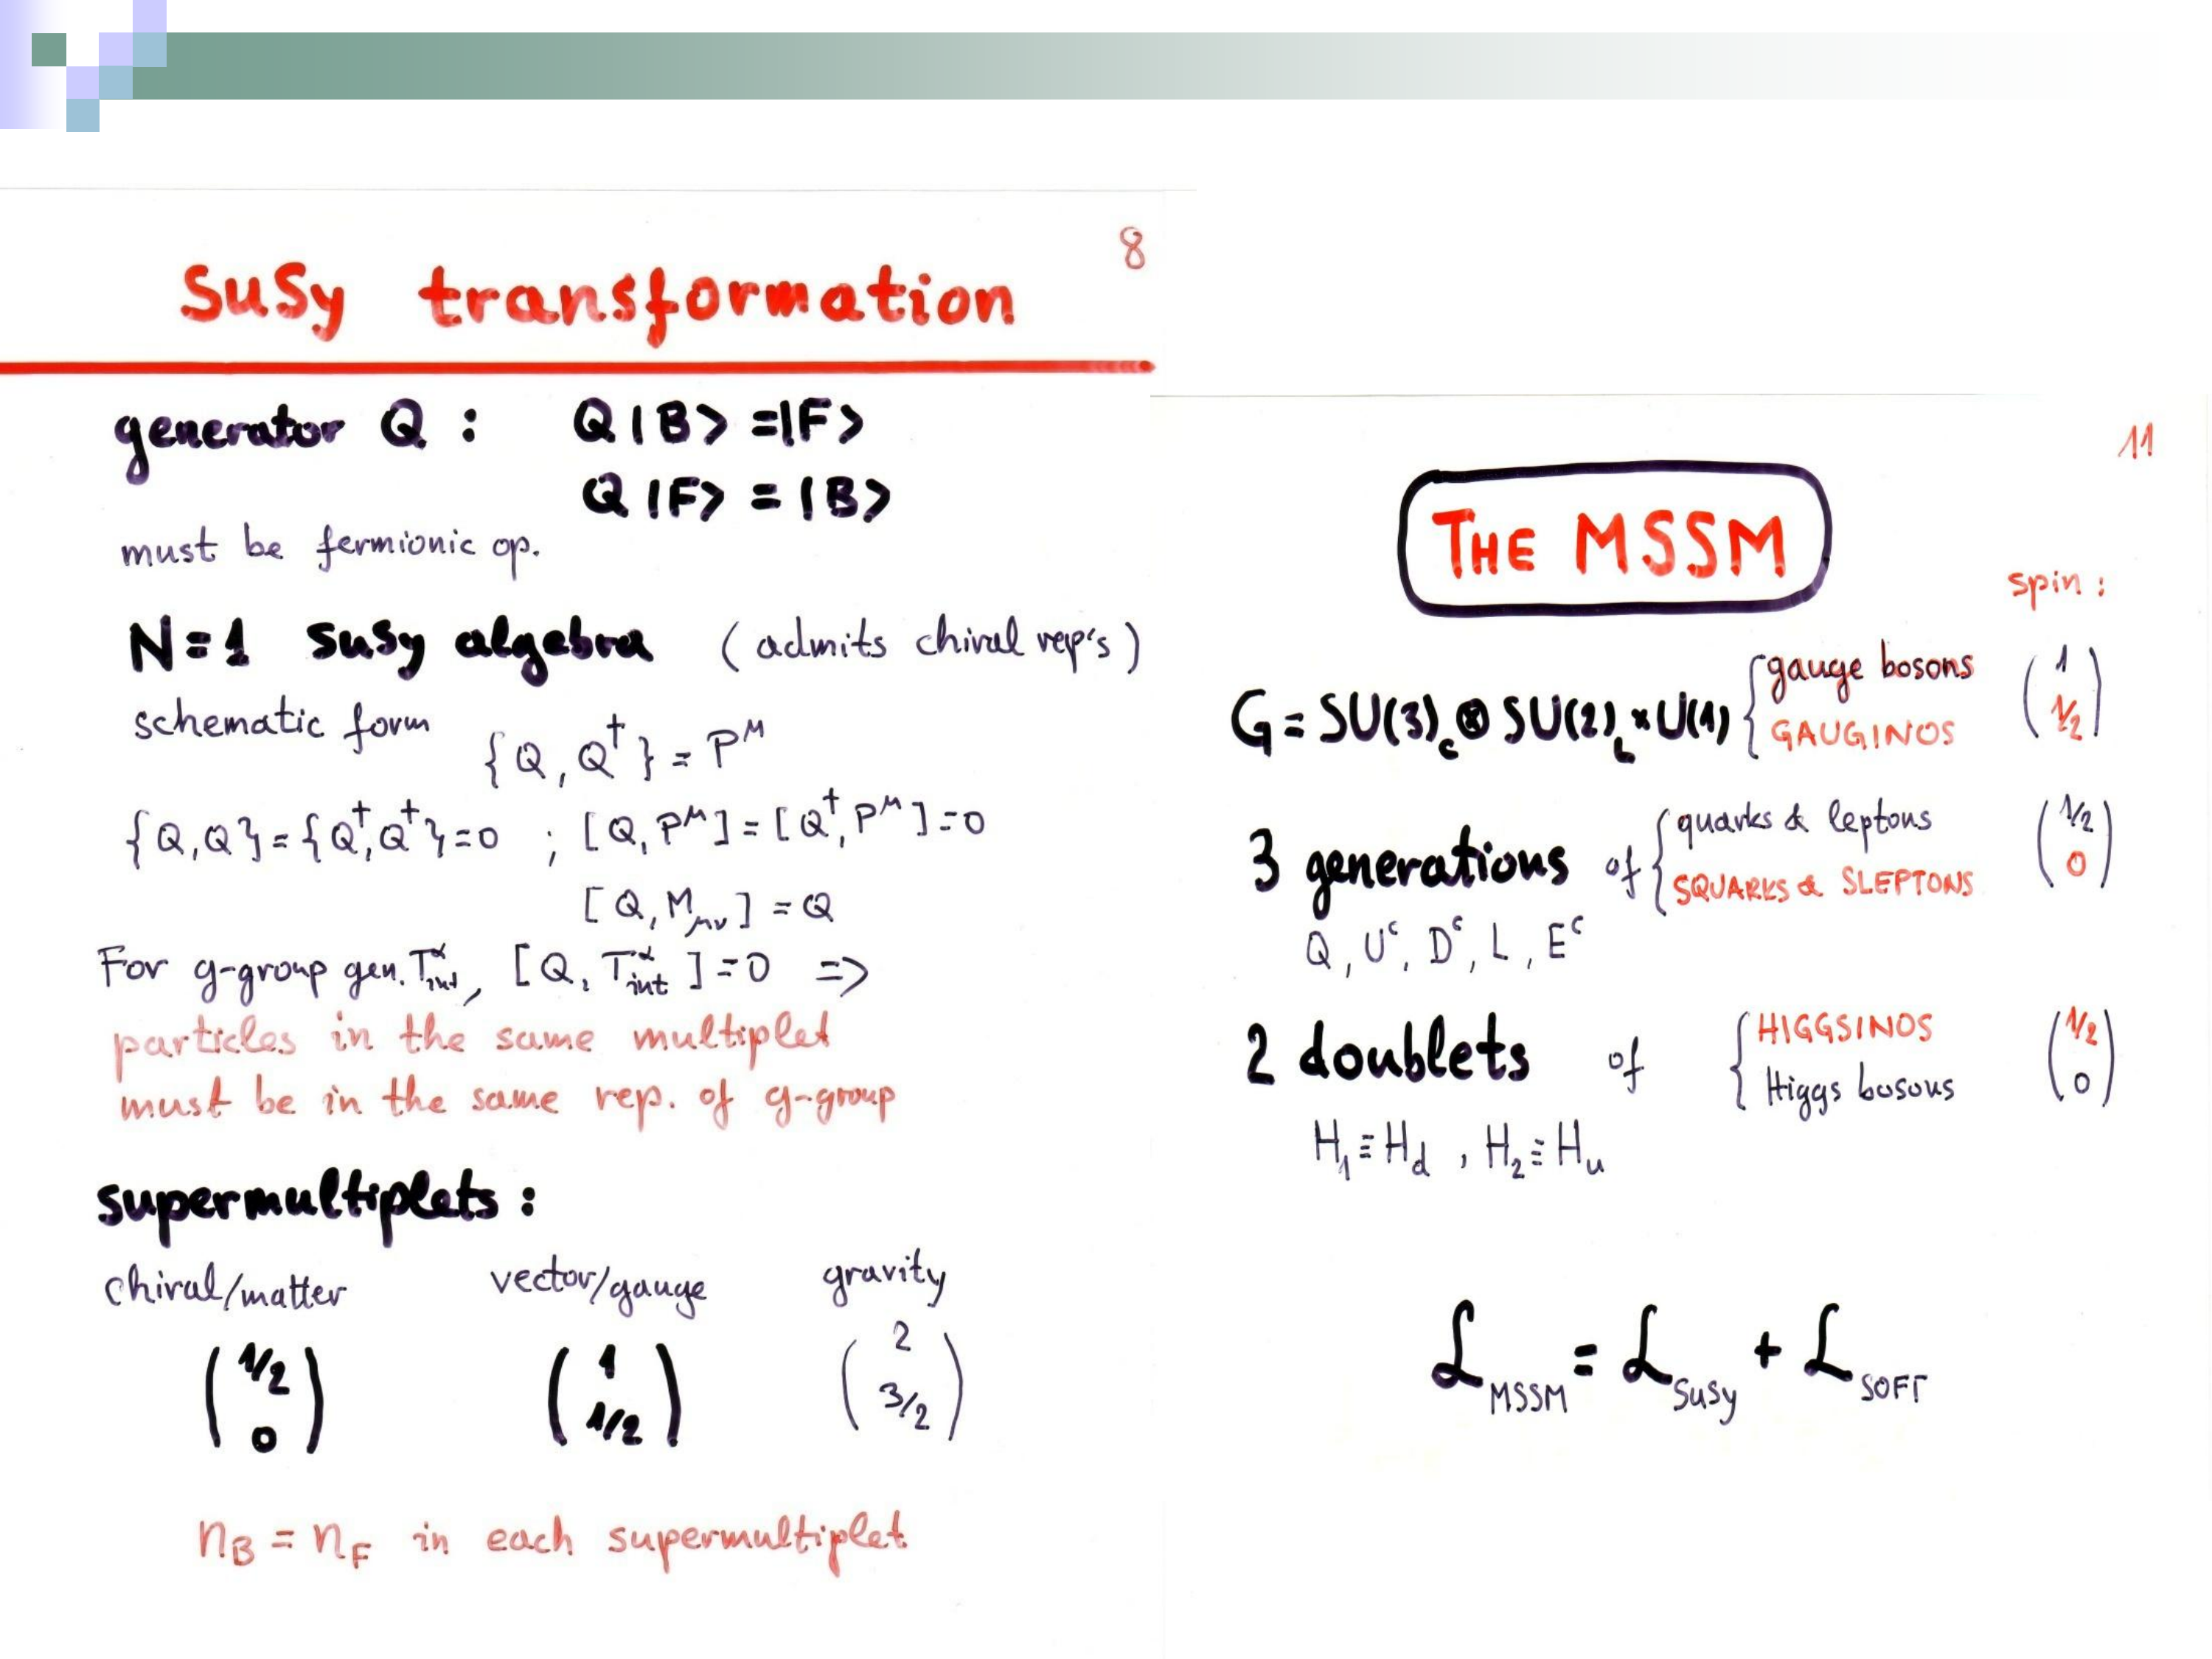 8
SUSY transformation
generator Q : Q|B> = |F>
Q|F> = |B>
must be fermionic op.
N=1 SUSY algebra (admits chiral rep's)
schematic form {Q, Q†} = P^μ
{Q,Q} = {Q†,Q†} = 0 ; [Q,P^μ] = [Q†,P^μ] = 0
[Q, M_μν] = Q
For g-group gen. T^α_int, [Q, T^α_int] = 0 =>
particles in the same multiplet
must be in the same rep. of g-group
supermultiplets :
chiral/matter vector/gauge gravity
(1/2 0) (1 1/2) (2 3/2)
n_B = n_F in each supermultiplet
11
THE MSSM
spin :
G = SU(3)_c ⊗ SU(2)_L × U(1) { gauge bosons GAUGINOS (1 1/2)
3 generations of { quarks & leptons SQUARKS & SLEPTONS (1/2 0)
Q, U^c, D^c, L, E^c
2 doublets of { HIGGSINOS Higgs bosons (1/2 0)
H_1 ≡ H_d , H_2 ≡ H_u
ℒ_MSSM = ℒ_SUSY + ℒ_SOFT